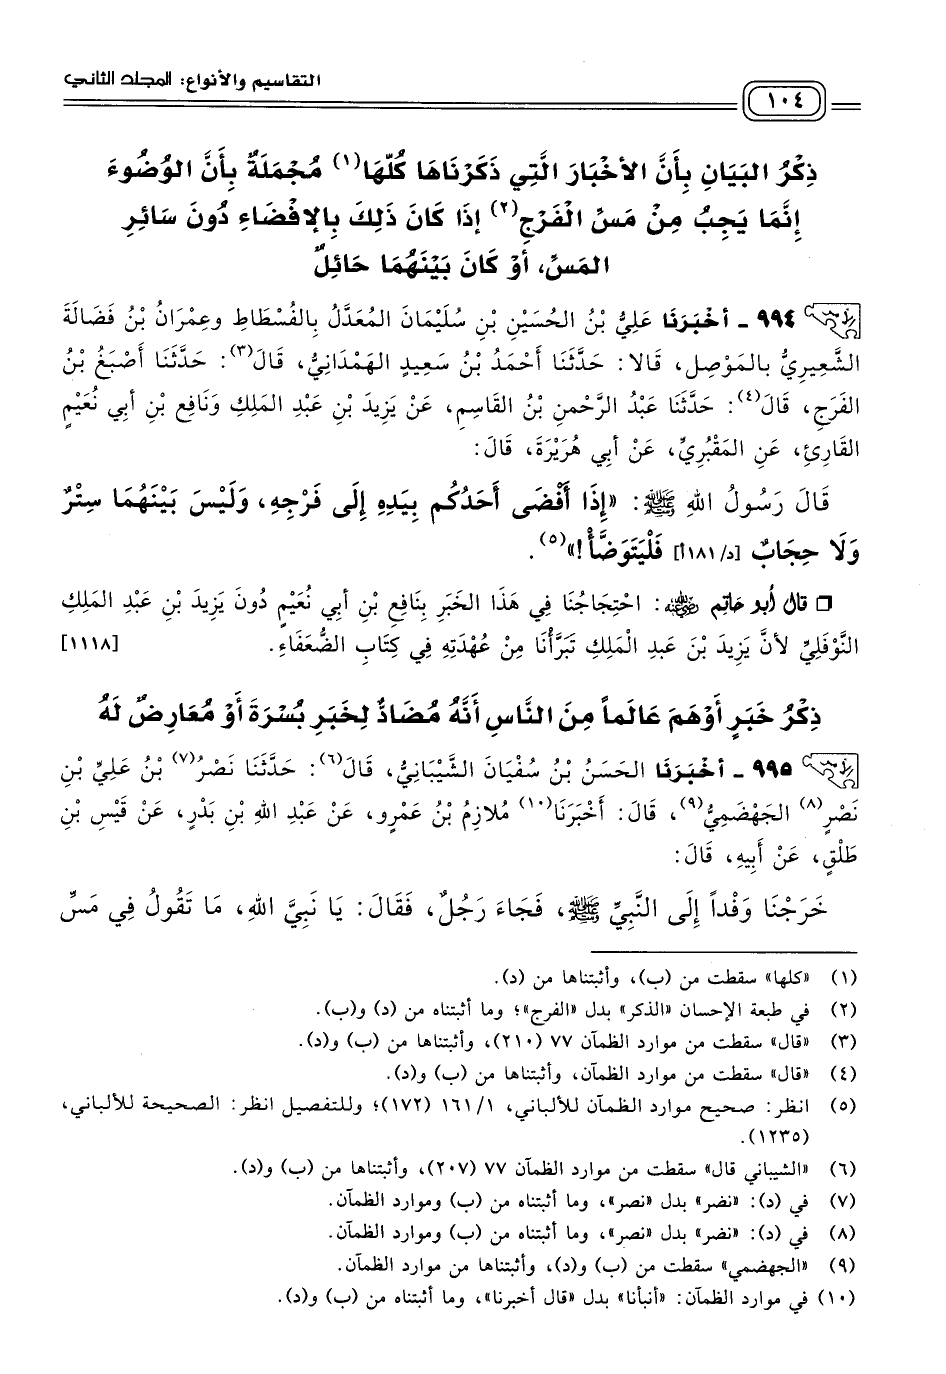 التقاسيم والأنواع: المجلد الثاني
١٠٤
ذِكْرُ البَيَانِ بِأَنَّ الأَخْبَارَ الَّتِي ذَكَرْنَاهَا كُلَّهَا(١) مُجْمَلَةٌ بِأَنَّ الوُضُوءَ
إِنَّمَا يَجِبُ مِنْ مَسِّ الْفَرْجِ(٢) إِذَا كَانَ ذَلِكَ بِالإِفْضَاءِ دُونَ سَائِرِ
المَسِّ، أَوْ كَانَ بَيْنَهُمَا حَائِلٌ
٩٩٤ - أَخْبَرَنَا عَلِيُّ بْنُ الحُسَيْنِ بْنِ سُلَيْمَانَ المُعَدَّلُ بِالفُسْطَاطِ وعِمْرَانُ بْنُ فَضَالَةَ
الشَّعِيرِيُّ بالمَوْصِل، قَالا: حَدَّثَنَا أَحْمَدُ بْنُ سَعِيدٍ الهَمْدَانِيُّ، قَالَ(٣): حَدَّثَنَا أَصْبَغُ بْنُ
الفَرَجِ، قَالَ(٤): حَدَّثَنَا عَبْدُ الرَّحْمنِ بْنُ القَاسِمِ، عَنْ يَزِيدَ بْنِ عَبْدِ المَلِكِ وَنَافِعِ بْنِ أَبي نُعَيْمٍ
القَارِئِ، عَنِ المَقْبُرِيِّ، عَنْ أَبي هُرَيْرَةَ، قَالَ:
قَالَ رَسُولُ اللهِ ﷺ: «إِذَا أَفْضَى أَحَدُكُم بِيَدِهِ إِلَى فَرْجِهِ، وَلَيْسَ بَيْنَهُمَا سِتْرٌ
وَلَا حِجَابٌ [د/١٨١أ] فَلْيَتَوَضَّأْ!»(٥).
❒ قال أبو حاتم ﵁: احْتِجَاجُنَا فِي هَذَا الخَبَرِ بِنَافِعِ بْنِ أَبي نُعَيْمٍ دُونَ يَزِيدَ بْنِ عَبْدِ المَلِكِ
النَّوْفَلِيِّ لأَنَّ يَزِيدَ بْنَ عَبدِ الْمَلِكِ تَبَرَّأْنَا مِنْ عُهْدَتِهِ فِي كِتَابِ الضُّعَفَاءِ. [١١١٨]
ذِكْرُ خَبَرٍ أَوْهَمَ عَالَماً مِنَ النَّاسِ أَنَّهُ مُضَادٌّ لِخَبَرِ بُسْرَةَ أَوْ مُعَارِضٌ لَهُ
٩٩٥ - أَخْبَرَنَا الحَسَنُ بْنُ سُفْيَانَ الشَّيْبَانِيُّ، قَالَ(٦): حَدَّثَنَا نَصْرُ(٧) بْنُ عَلِيِّ بْنِ
نَصْرٍ(٨) الجَهْضَمِيُّ(٩)، قَالَ: أَخْبَرَنَا(١٠) مُلازِمُ بْنُ عَمْرٍو، عَنْ عَبْدِ اللهِ بْنِ بَدْرٍ، عَنْ قَيْسِ بْنِ
طَلْقٍ، عَنْ أَبِيهِ، قَالَ:
خَرَجْنَا وَفْداً إِلَى النَّبِيِّ ﷺ، فَجَاءَ رَجُلٌ، فَقَالَ: يَا نَبِيَّ اللهِ، مَا تَقُولُ فِي مَسِّ
(١) «كلها» سقطت من (ب)، وأثبتناها من (د).
(٢) في طبعة الإحسان «الذكر» بدل «الفرج»؛ وما أثبتناه من (د) و(ب).
(٣) «قال» سقطت من موارد الظمآن ٧٧ (٢١٠)، وأثبتناها من (ب) و(د).
(٤) «قال» سقطت من موارد الظمآن، وأثبتناها من (ب) و(د).
(٥) انظر: صحيح موارد الظمآن للألباني، ١/ ١٦١ (١٧٢)؛ وللتفصيل انظر: الصحيحة للألباني،
(١٢٣٥).
(٦) «الشيباني قال» سقطت من موارد الظمآن ٧٧ (٢٠٧)، وأثبتناها من (ب) و(د).
(٧) في (د): «نضر» بدل «نصر»، وما أثبتناه من (ب) وموارد الظمآن.
(٨) في (د): «نضر» بدل «نصر»، وما أثبتناه من (ب) وموارد الظمآن.
(٩) «الجهضمي» سقطت من (ب) و(د)، وأثبتناها من موارد الظمآن.
(١٠) في موارد الظمآن: «أنبأنا» بدل «قال أخبرنا»، وما أثبتناه من (ب) و(د).